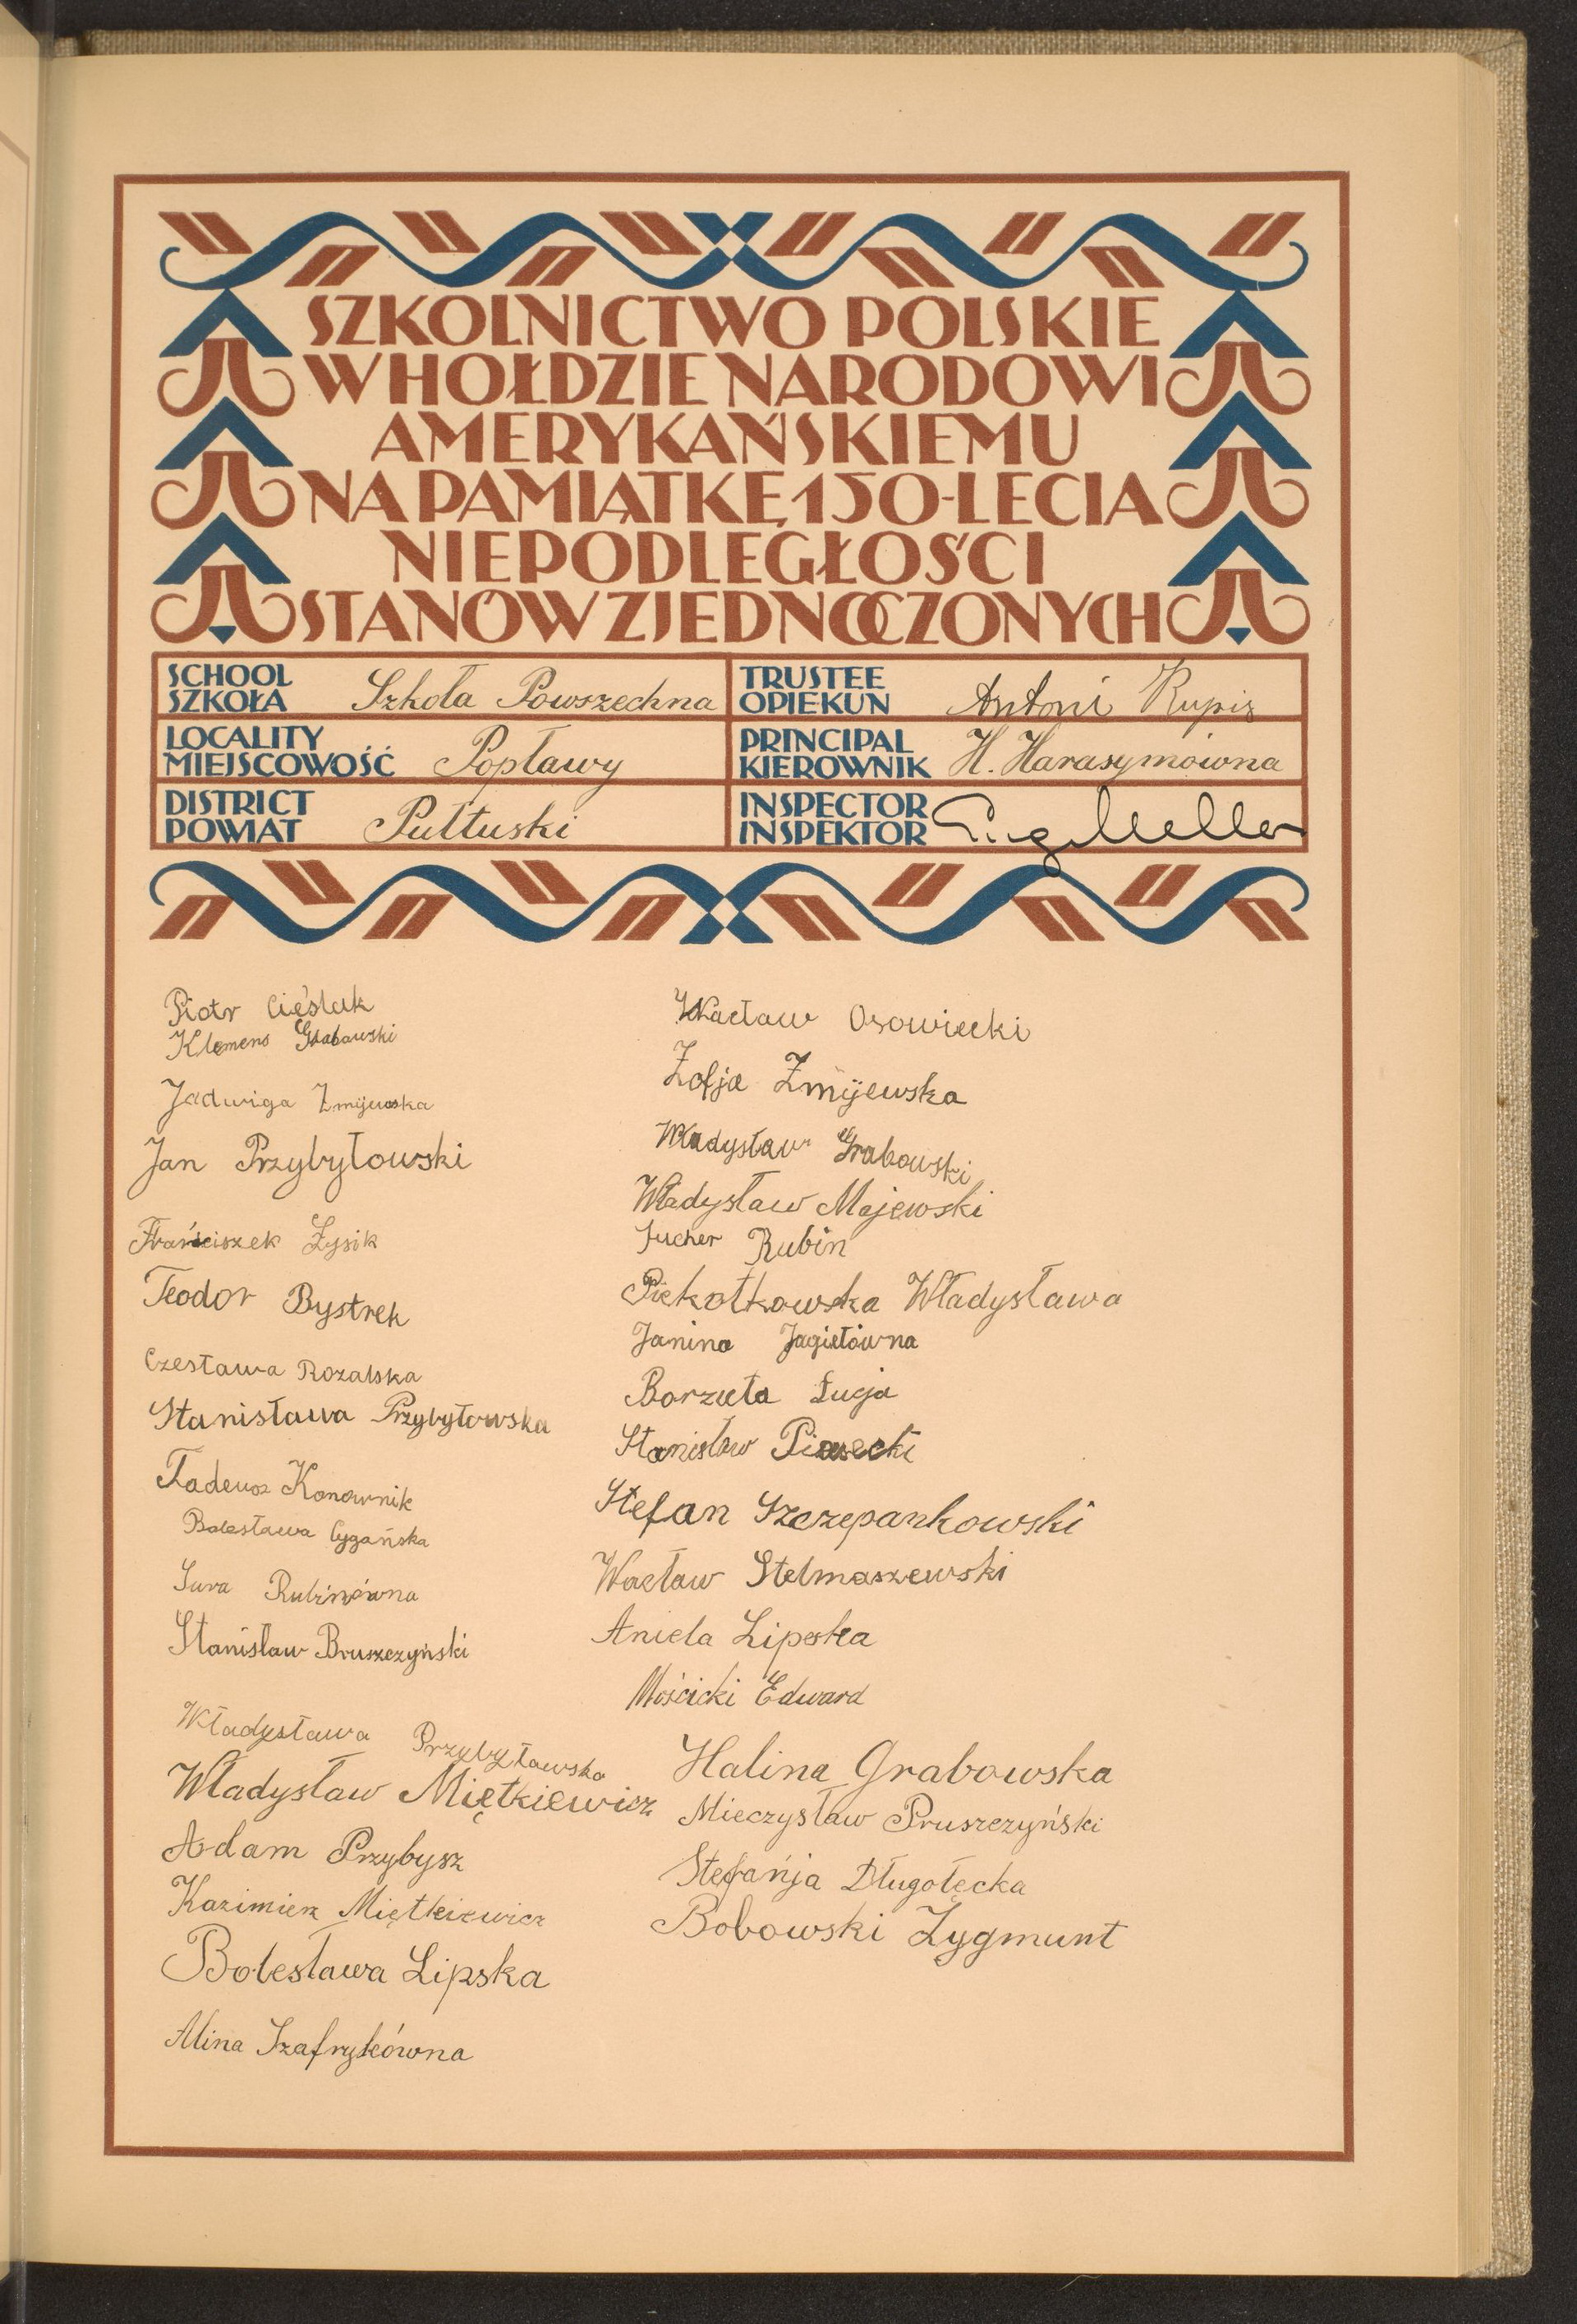 SZKOLNICTWO POLSKIE
W HOŁDZIE NARODOWI
AMERYKAŃSKIEMU
NA PAMIĄTKĘ 150-LECIA
NIEPODLEGŁOŚCI
STANÓW ZJEDNOCZONYCH
SCHOOL
SZKOŁA Szkoła Powszechna
TRUSTEE
OPIEKUN Antoni Rupis
LOCALITY
MIEJSCOWOŚĆ Popławy
PRINCIPAL
KIEROWNIK H. Harasymówna
DISTRICT
POWIAT Pułtuski
INSPECTOR
INSPEKTOR
Piotr Cieślak
Klemens Grabowski
Jadwiga Żmijewska
Jan Przybyłowski
Franciszek Łysik
Teodor Bystrek
Czesława Rozalska
Stanisława Przybyłowska
Tadeusz Konownik
Bolesława Cygańska
Sura Rubinówna
Stanisław Bruszczyński
Władysława Przybyławska
Władysław Miętkiewicz
Adam Przybysz
Kazimierz Miętkiewicz
Bolesława Lipska
Alina Szafrykówna
Wacław Osowiecki
Zofja Żmijewska
Władysław Grabowski
Władysław Majewski
Sucher Rubin
Piekotkowska Władysława
Janina Jagiełówna
Borzuta Łucja
Stanisław Piasecki
Stefan Szczepankowski
Wacław Stelmaszewski
Aniela Lipska
Mościcki Edward
Halina Grabowska
Mieczysław Pruszczyński
Stefańja Długołęcka
Bobowski Zygmunt